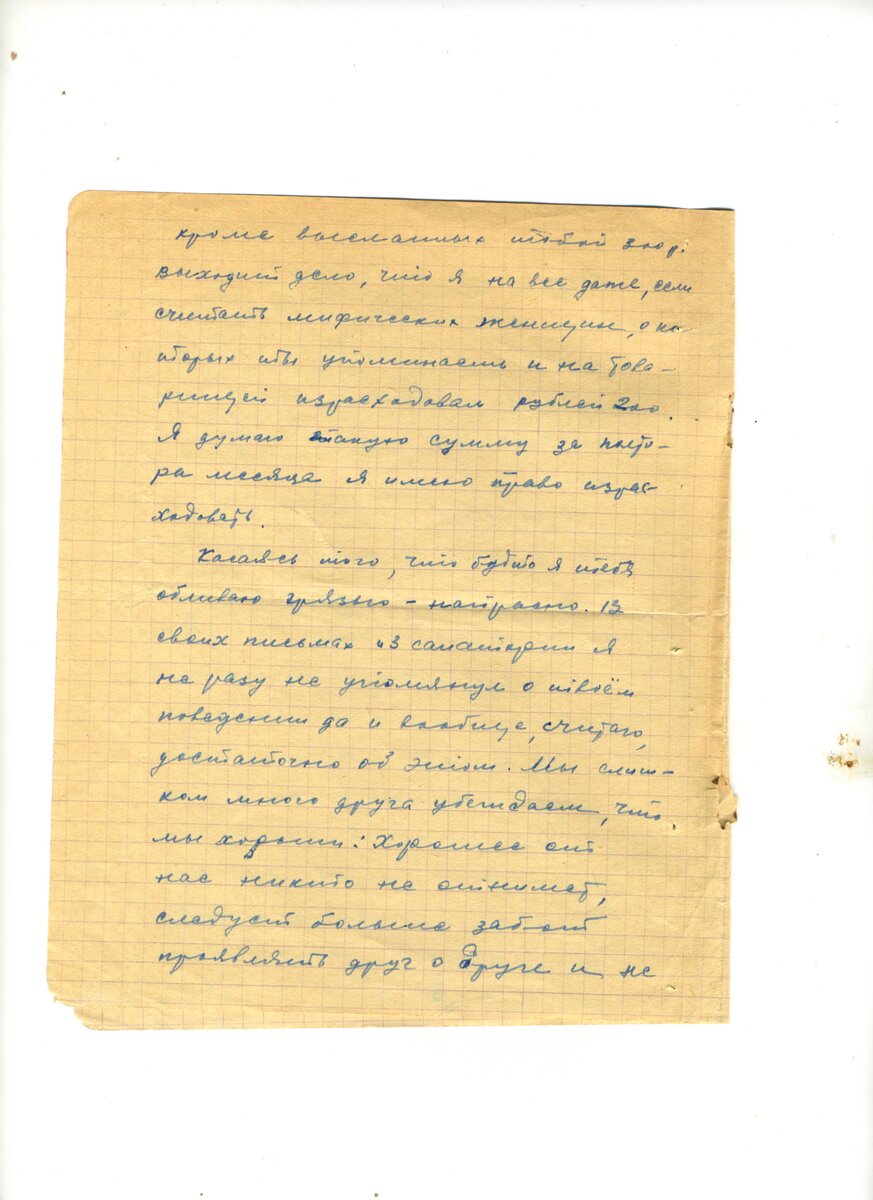 кроме высланных тобой 300р.
Выходит дело, что я на все даже, если
считать мифических женщин, о ко-
торых ты упоминаешь и на това-
рищей израсходовал рублей 200.
Я думаю такую сумму за полто-
ра месяца я имею право израс-
ходовать.
Касаясь того, что будто я тебя
обливаю грязью – напрасно. В
своих письмах из санатории я
не разу не упомянул о твоём
поведении да и вообще, считаю,
достаточно об этом. Мы слиш-
ком много друга убеждаем, что
мы хороши: Хорошее от
нас никто не отнимет,
следует больше забот
проявлять друг о друге и не